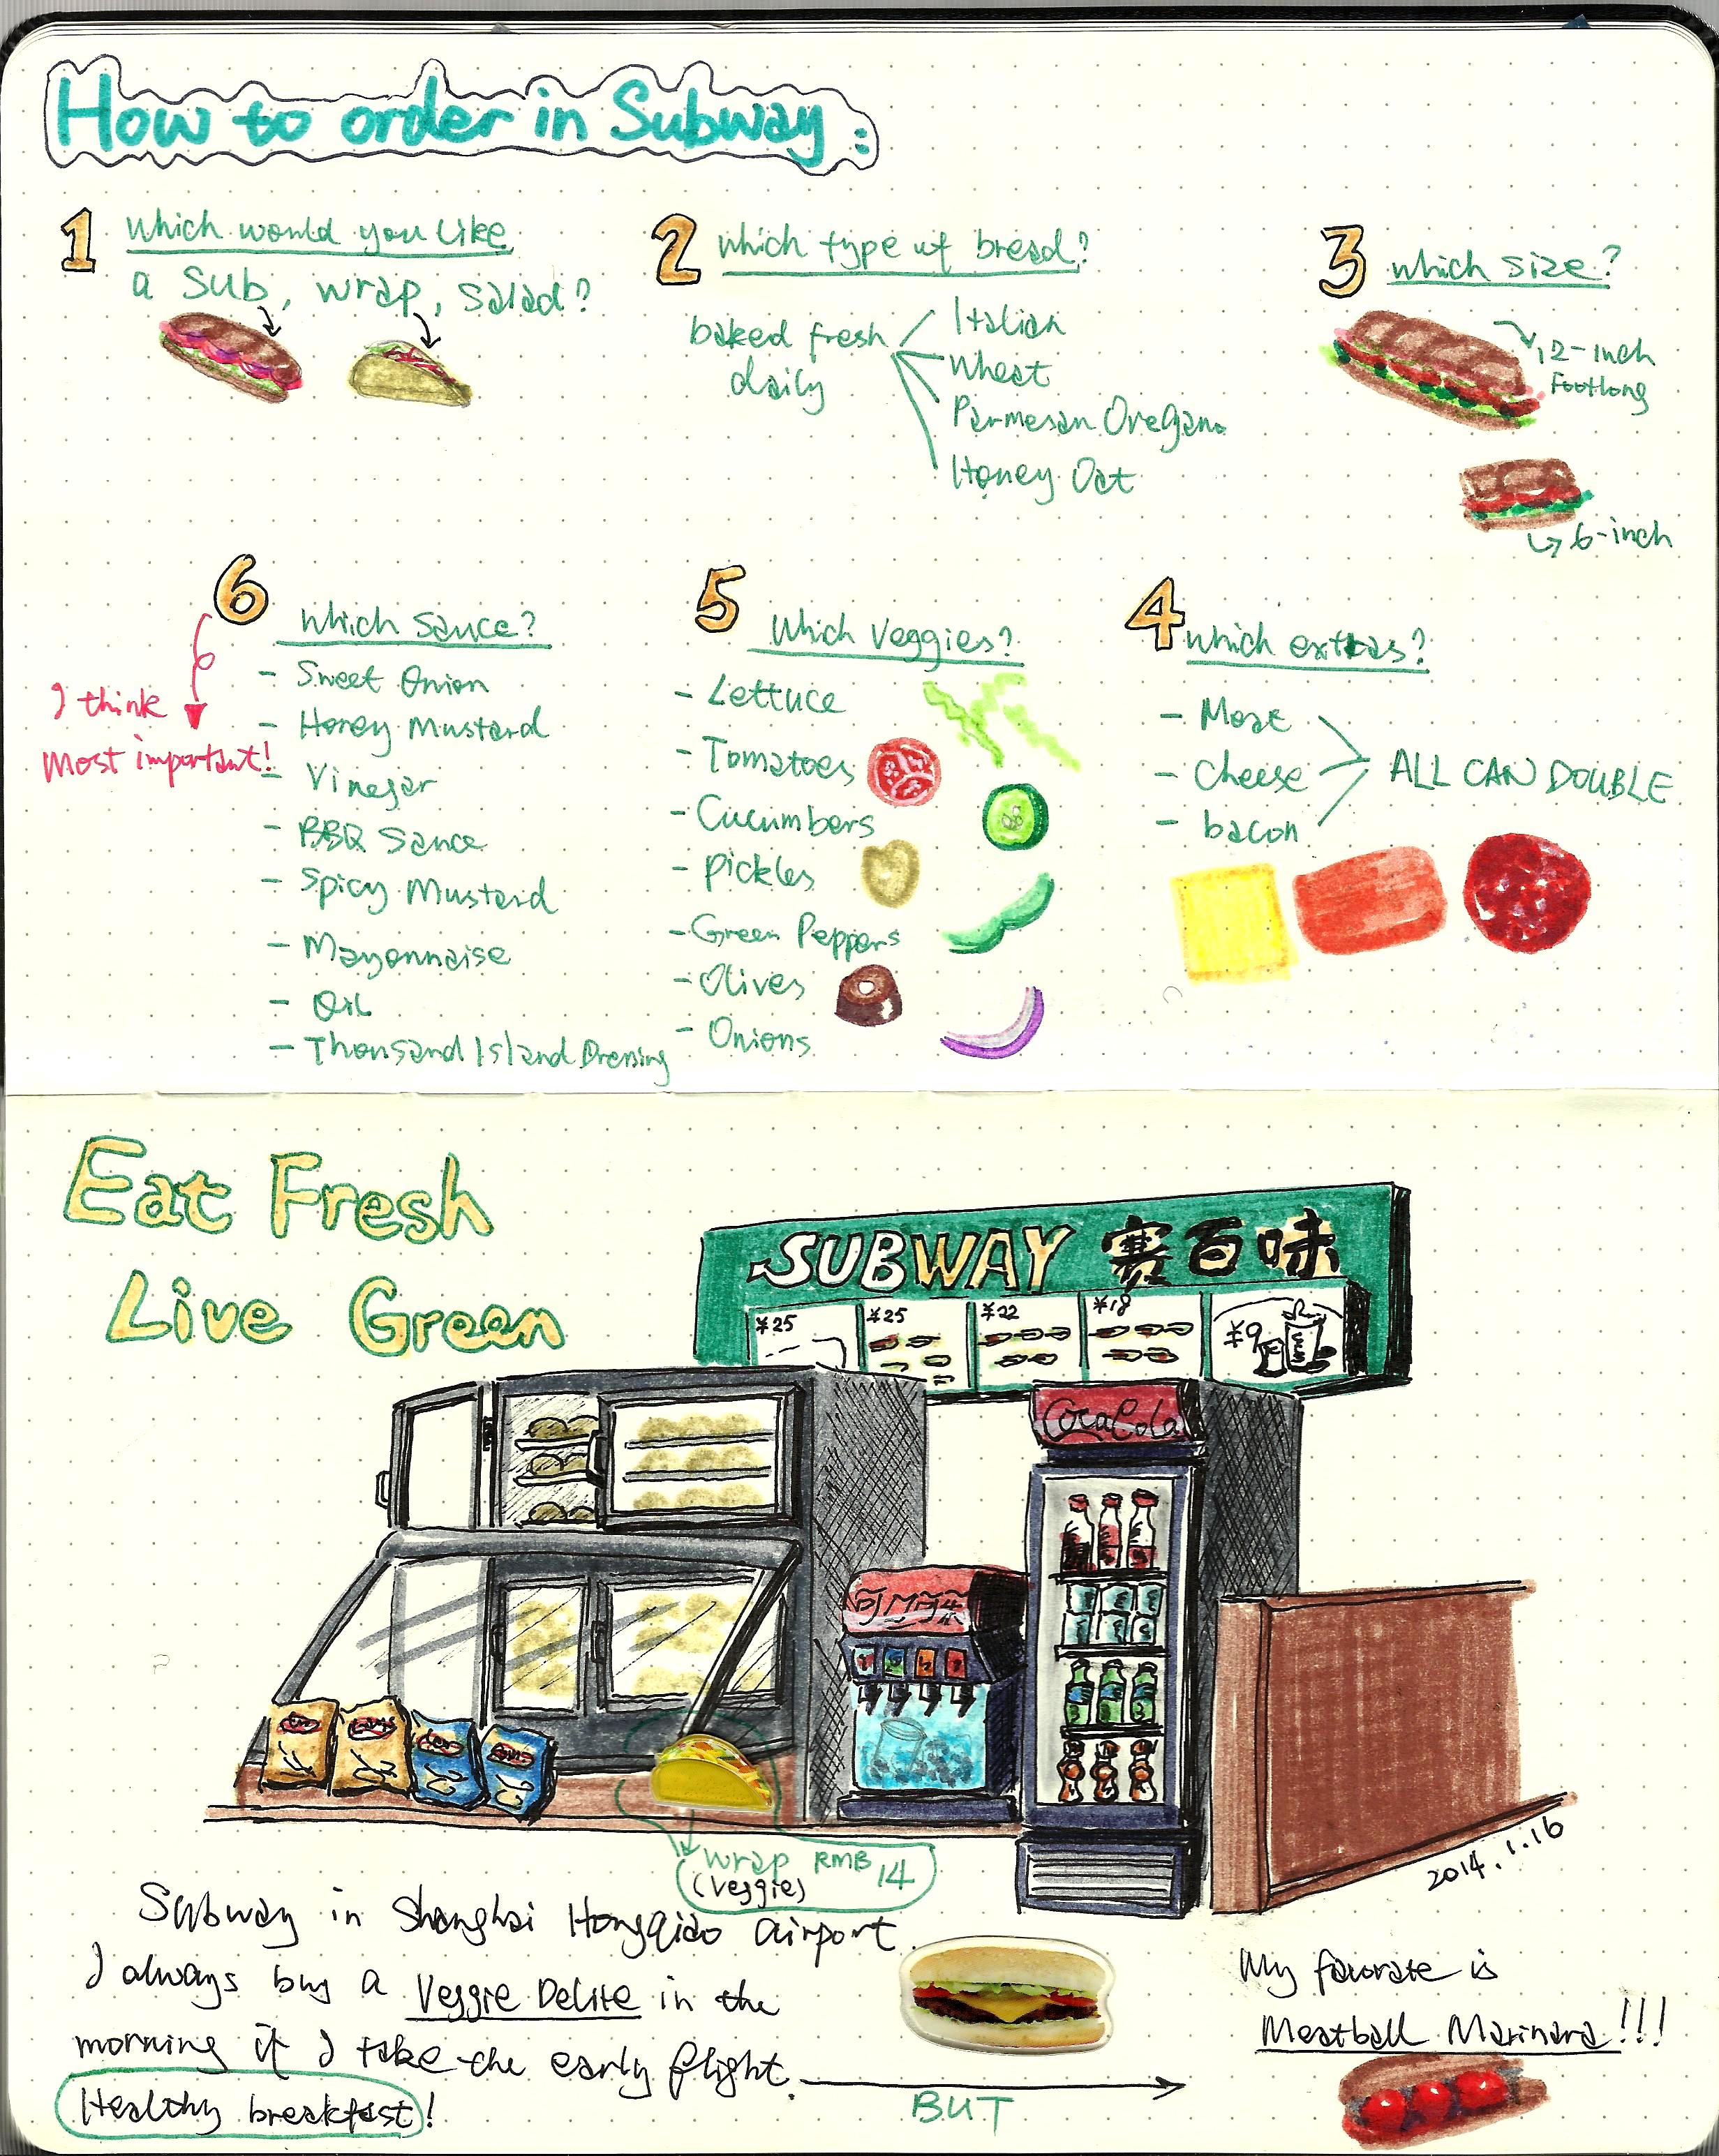 How to order in Subway:
1 Which would you like
a sub, wrap, salad?
2 which type of bread?
baked fresh
daily
Italian
Wheat
Parmesan Oregano
Honey Oat
3 which size?
12-inch
Footlong
6-inch
4 which extras?
- Meat
- Cheese
- bacon
ALL CAN DOUBLE
5 Which Veggies?
- Lettuce
- Tomatoes
- Cucumbers
- Pickles
- Green Peppers
- Olives
- Onions
6 which Sauce?
I think
most important!
- Sweet Onion
- Honey Mustard
- Vinegar
- BBQ Sauce
- Spicy Mustard
- Mayonnaise
- Oil
- Thousand Island Dressing
Eat Fresh
Live Green
SUBWAY 赛百味
¥25
¥25
¥22
¥18
¥9
CocaCola
wrap RMB 14
(veggie)
2014.1.16
Subway in Shanghai Hongqiao airport.
I always buy a Veggie Delite in the
morning if I take the early flight.
Healthy breakfast!
BUT
My favorate is
Meatball Marinara!!!